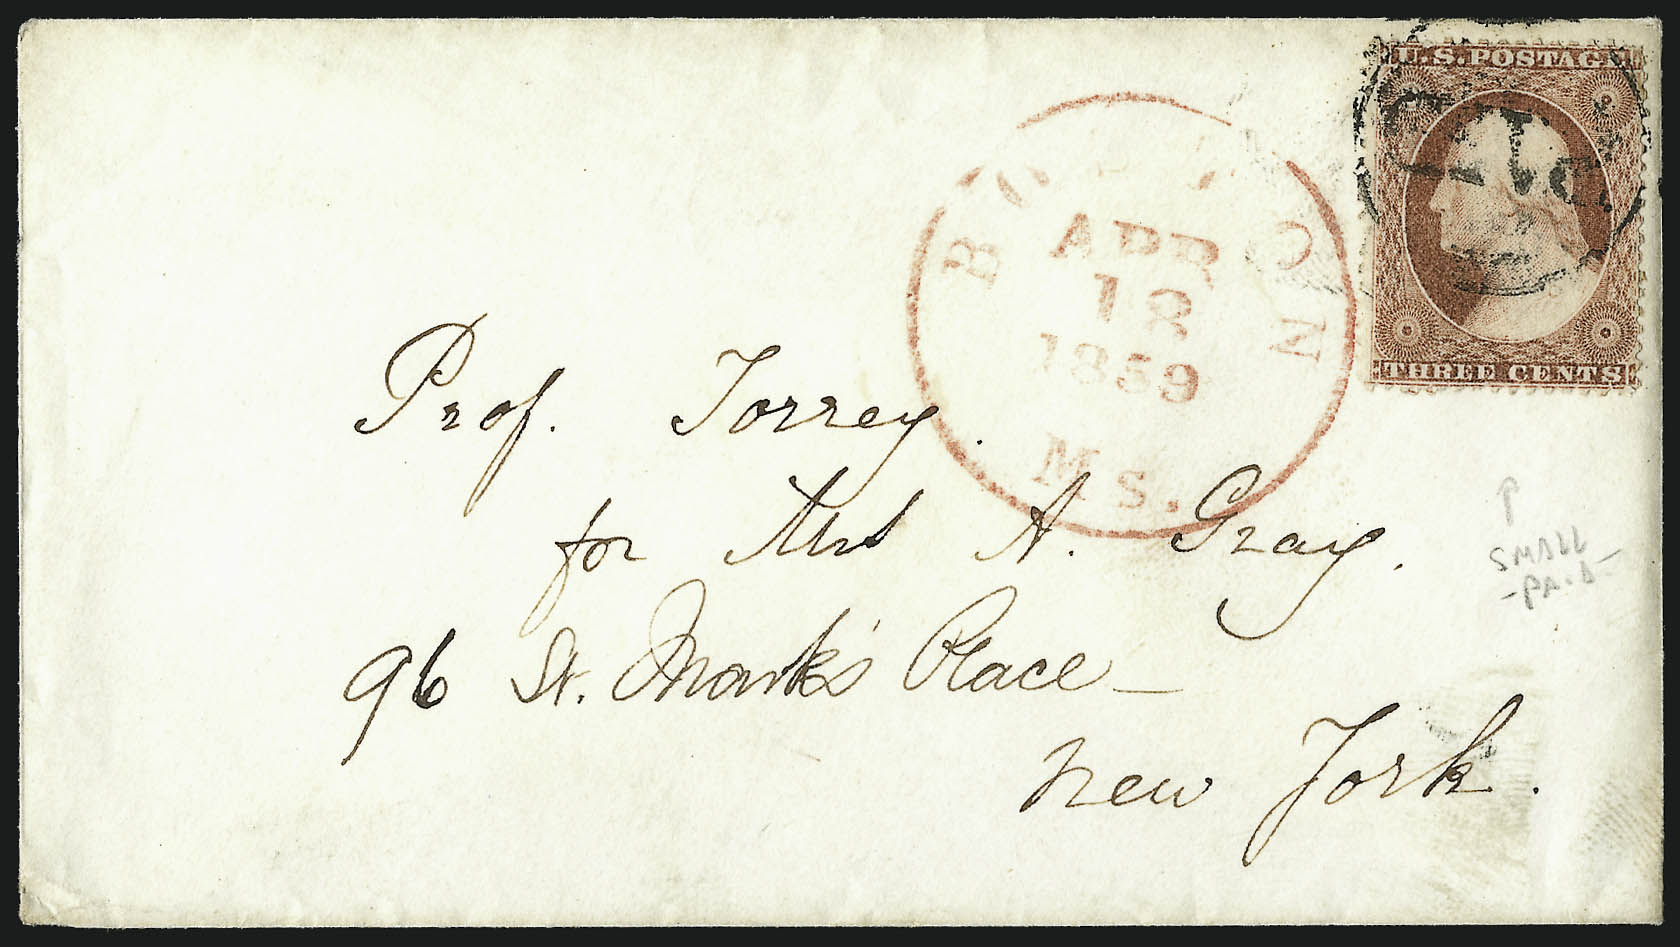 U.S. POSTAGE
PAID
THREE CENTS
BOSTON
APR
18
1859
Ms.
Prof. Torrey.
for Mrs A. Gray.
96 St. Mark's Place —
New York.
SMALL
- PAID -